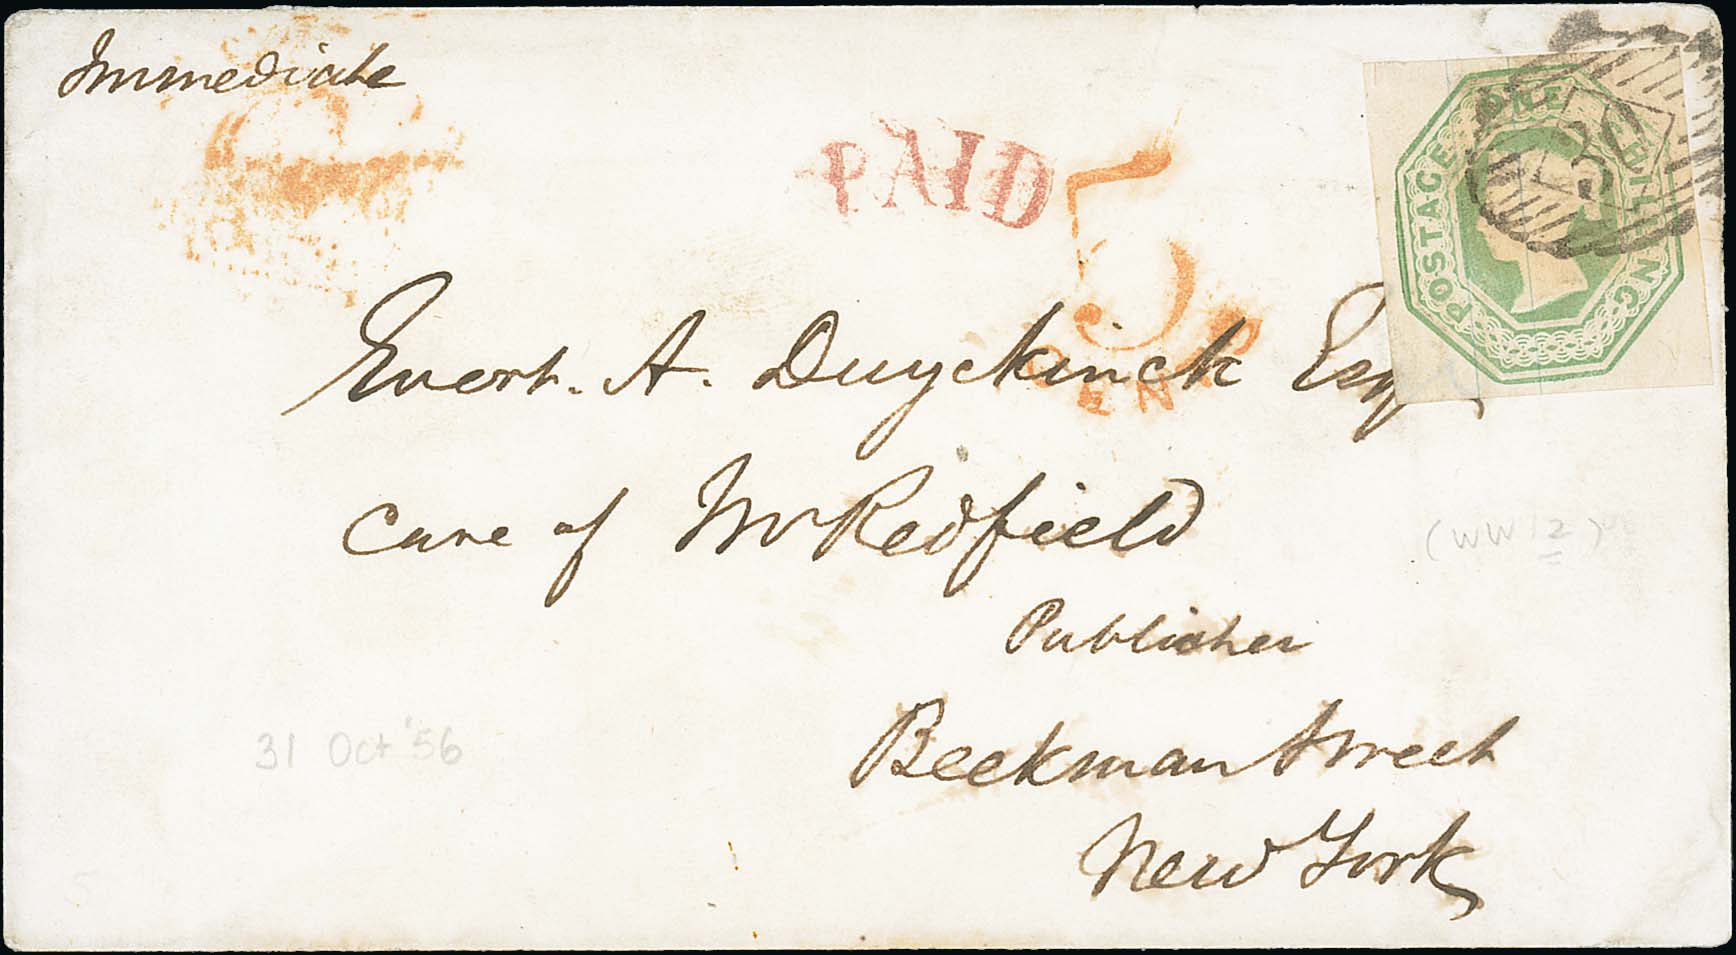 Immediate
PAID
5
CENTS
POSTAGE ONE SHILLING
Evert. A. Duyckinck Esq
care of Mr Redfield
(WW12)
Publisher
31 Oct '56
Beekman Street
New York